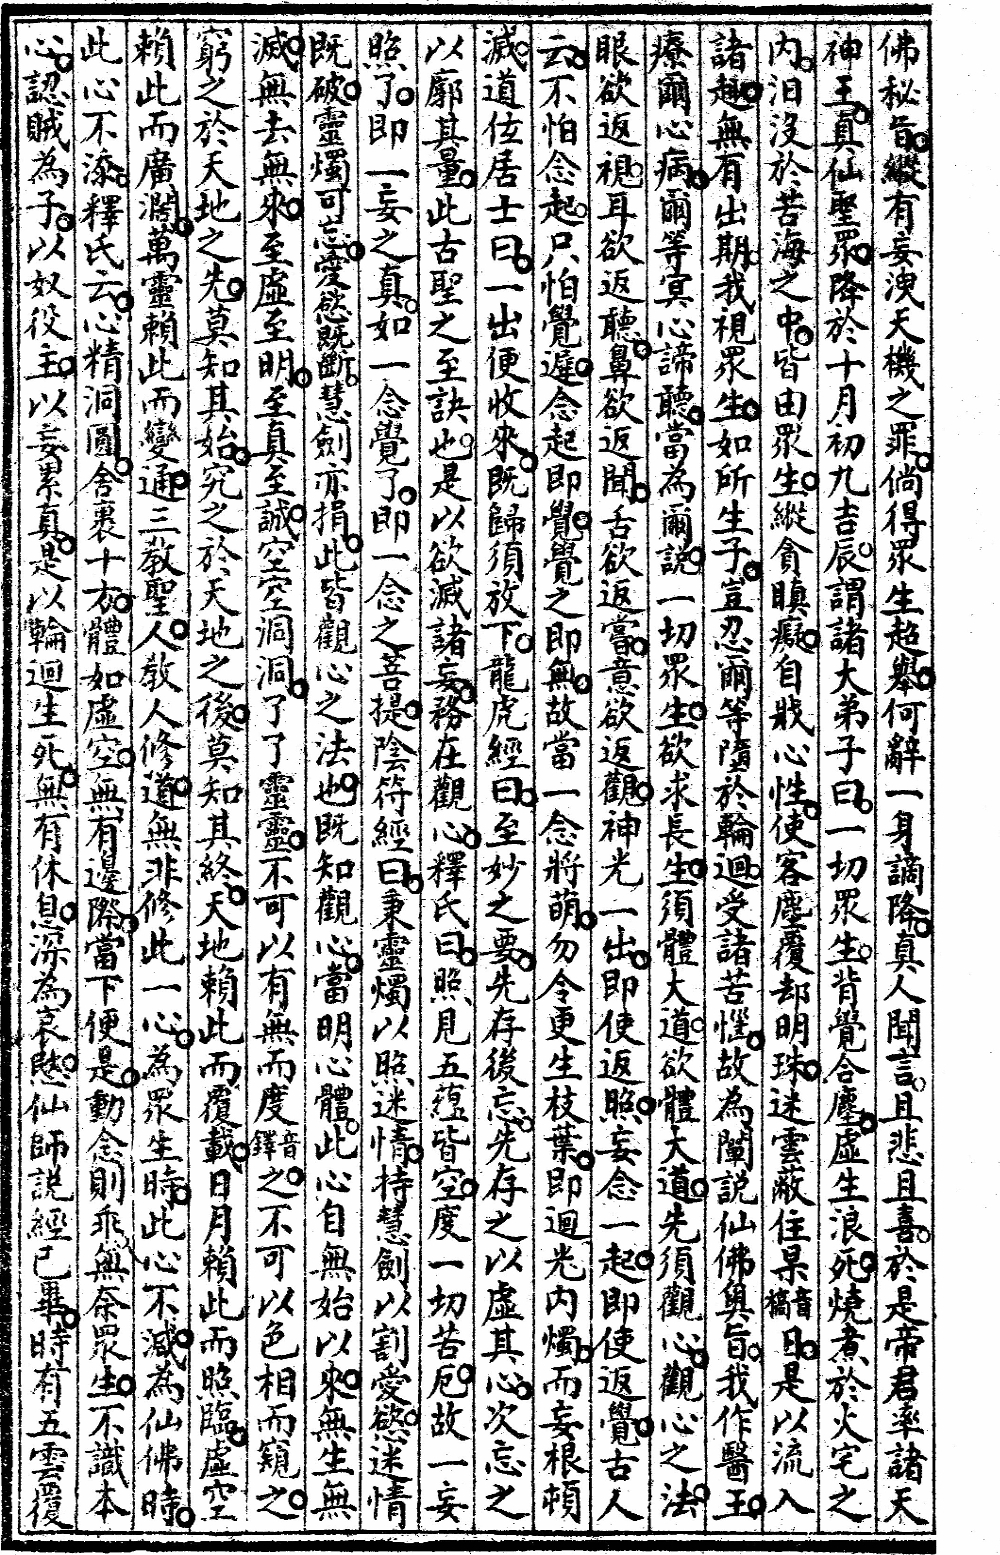 佛秘旨縱有妄洩天機之罪倘得眾生超舉何辭一身謫降真人聞言且悲且喜於是帝君率諸天
神王真仙聖眾降於十月初九吉辰謂諸大弟子曰一切眾生背覺合塵虛生浪死燒煮於火宅之
內汨沒於苦海之中皆由眾生縱貪瞋癡自戕心性使客塵覆却明珠迷雲蔽住杲音槁日是以流入
諸趣無有出期我視眾生如所生子豈忍爾等隨於輪迴受諸苦惱故為闡説仙佛奧旨我作醫王
療爾心病爾等冥心諦聽當為爾説一切眾生欲求長生須體大道欲體大道先須觀心觀心之法
眼欲返視耳欲返聽鼻欲返聞舌欲返嘗意欲返觀神光一出即使返照妄念一起即使返覺古人
云不怕念起只怕覺遲念起即覺覺之即無故當一念將萌勿令更生枝葉即迴光內燭而妄根頓
滅道位居士曰一出便收來既歸須放下龍虎經曰至妙之要先存後忘先存之以虛其心次忘之
以廓其量此古聖之至訣也是以欲滅諸妄務在觀心釋氏曰照見五蘊皆空度一切苦厄故一妄
照了即一妄之真如一念覺了即一念之菩提陰符經曰秉靈燭以照迷情持慧劍以割愛慾迷情
既破靈燭可忘愛慾既斷慧劍亦捐此皆觀心之法也既知觀心當明心體此心自無始以來無生無
滅無去無來至虛至明至真至誠空空洞洞了了靈靈不可以有無而度音鐸之不可以色相而窺之
窮之於天地之先莫知其始究之於天地之後莫知其終天地賴此而覆載日月賴此而照臨虛空
賴此而廣濶萬靈賴此而變通三教聖人教人修道無非修此一心為眾生時此心不減為仙佛時
此心不添釋氏云心精洞圓舍裹十方體如虛空無有邊際當下便是動念則乖無奈眾生不識本
心認賊為子以奴役主以妄累真是以輪迴生死無有休息深為哀愍仙師説經已畢時有五雲覆